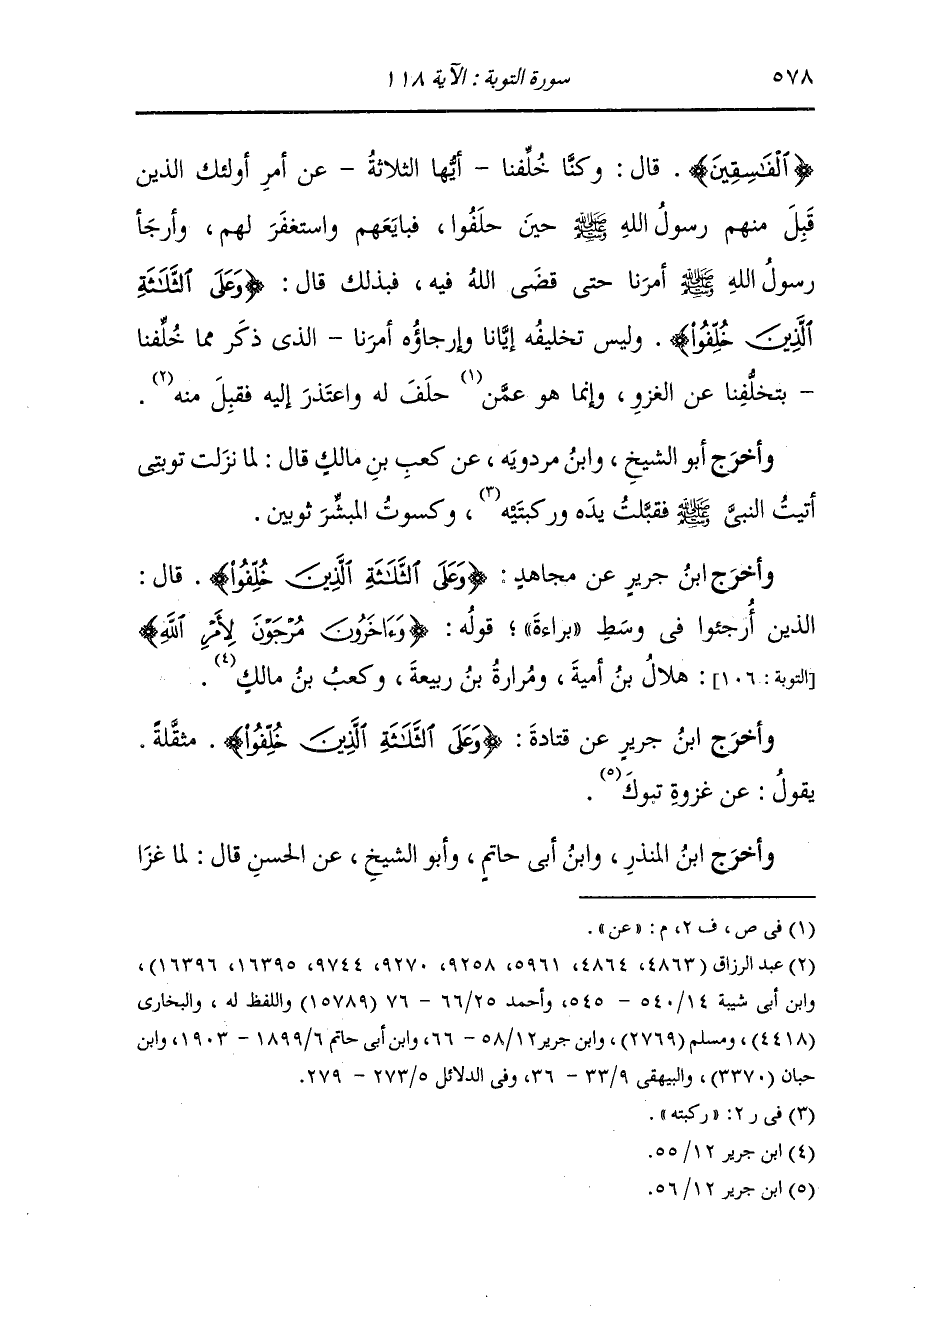 ٥٧٨ سورة التوبة : الآية ١١٨
﴿ٱلْفَٰسِقِينَ﴾ . قال : وكنَّا خُلِّفنا – أيُّها الثلاثةُ – عن أمرِ أولئك الذين
قَبِلَ منهم رسولُ اللهِ ﷺ حينَ حلَفُوا ، فبايَعَهم واستغفَرَ لهم ، وأرجَأ
رسولُ اللهِ ﷺ أمرَنا حتى قضَى اللهُ فيه ، فبذلك قال : ﴿وَعَلَى ٱلثَّلَٰثَةِ
ٱلَّذِينَ خُلِّفُواْ﴾ . وليس تخليفُه إيَّانا وإرجاؤُه أمرَنا – الذى ذكَر مما خُلِّفنا
– بتخلُّفِنا عن الغزوِ ، وإنما هو عمَّن(١) حلَفَ له واعتذرَ إليه فقبِلَ منه(٢) .
وأخرَج أبو الشيخِ ، وابنُ مردويَه ، عن كعبِ بنِ مالكٍ قال : لما نزَلت توبتِى
أتيتُ النبىَّ ﷺ فقبَّلتُ يدَه وركبتَيْه(٣) ، وكسوتُ المبشِّرَ ثوبين .
وأخرَج ابنُ جريرٍ عن مجاهدٍ : ﴿وَعَلَى ٱلثَّلَٰثَةِ ٱلَّذِينَ خُلِّفُواْ﴾ . قال :
الذين أُرجئوا فى وسَطِ «براءةَ» ؛ قولُه : ﴿وَءَاخَرُونَ مُرْجَوْنَ لِأَمْرِ ٱللَّهِ﴾
[التوبة : ١٠٦] : هلالُ بنُ أميةَ ، ومُرارةُ بنُ ربيعةَ ، وكعبُ بنُ مالكٍ(٤) .
وأخرَج ابنُ جريرٍ عن قتادةَ : ﴿وَعَلَى ٱلثَّلَٰثَةِ ٱلَّذِينَ خُلِّفُواْ﴾ . مثقَّلةً .
يقولُ : عن غزوةِ تبوكَ(٥) .
وأخرَج ابنُ المنذرِ ، وابنُ أبى حاتمٍ ، وأبو الشيخِ ، عن الحسنِ قال : لما غزَا
(١) فى ص ، ف ٢، م : «عن» .
(٢) عبد الرزاق (٤٨٦٣، ٤٨٦٤، ٥٩٦١، ٩٢٥٨، ٩٢٧٠، ٩٧٤٤، ١٦٣٩٥، ١٦٣٩٦) ،
وابن أبى شيبة ٥٤٠/١٤ – ٥٤٥، وأحمد ٦٦/٢٥ – ٧٦ (١٥٧٨٩) واللفظ له ، والبخارى
(٤٤١٨) ، ومسلم (٢٧٦٩) ، وابن جرير ٥٨/١٢ – ٦٦، وابن أبى حاتم ١٨٩٩/٦ – ١٩٠٣، وابن
حبان (٣٣٧٠) ، والبيهقى ٣٣/٩ – ٣٦، وفى الدلائل ٢٧٣/٥ – ٢٧٩.
(٣) فى ر ٢: «ركبته» .
(٤) ابن جرير ٥٥/١٢.
(٥) ابن جرير ٥٦/١٢.